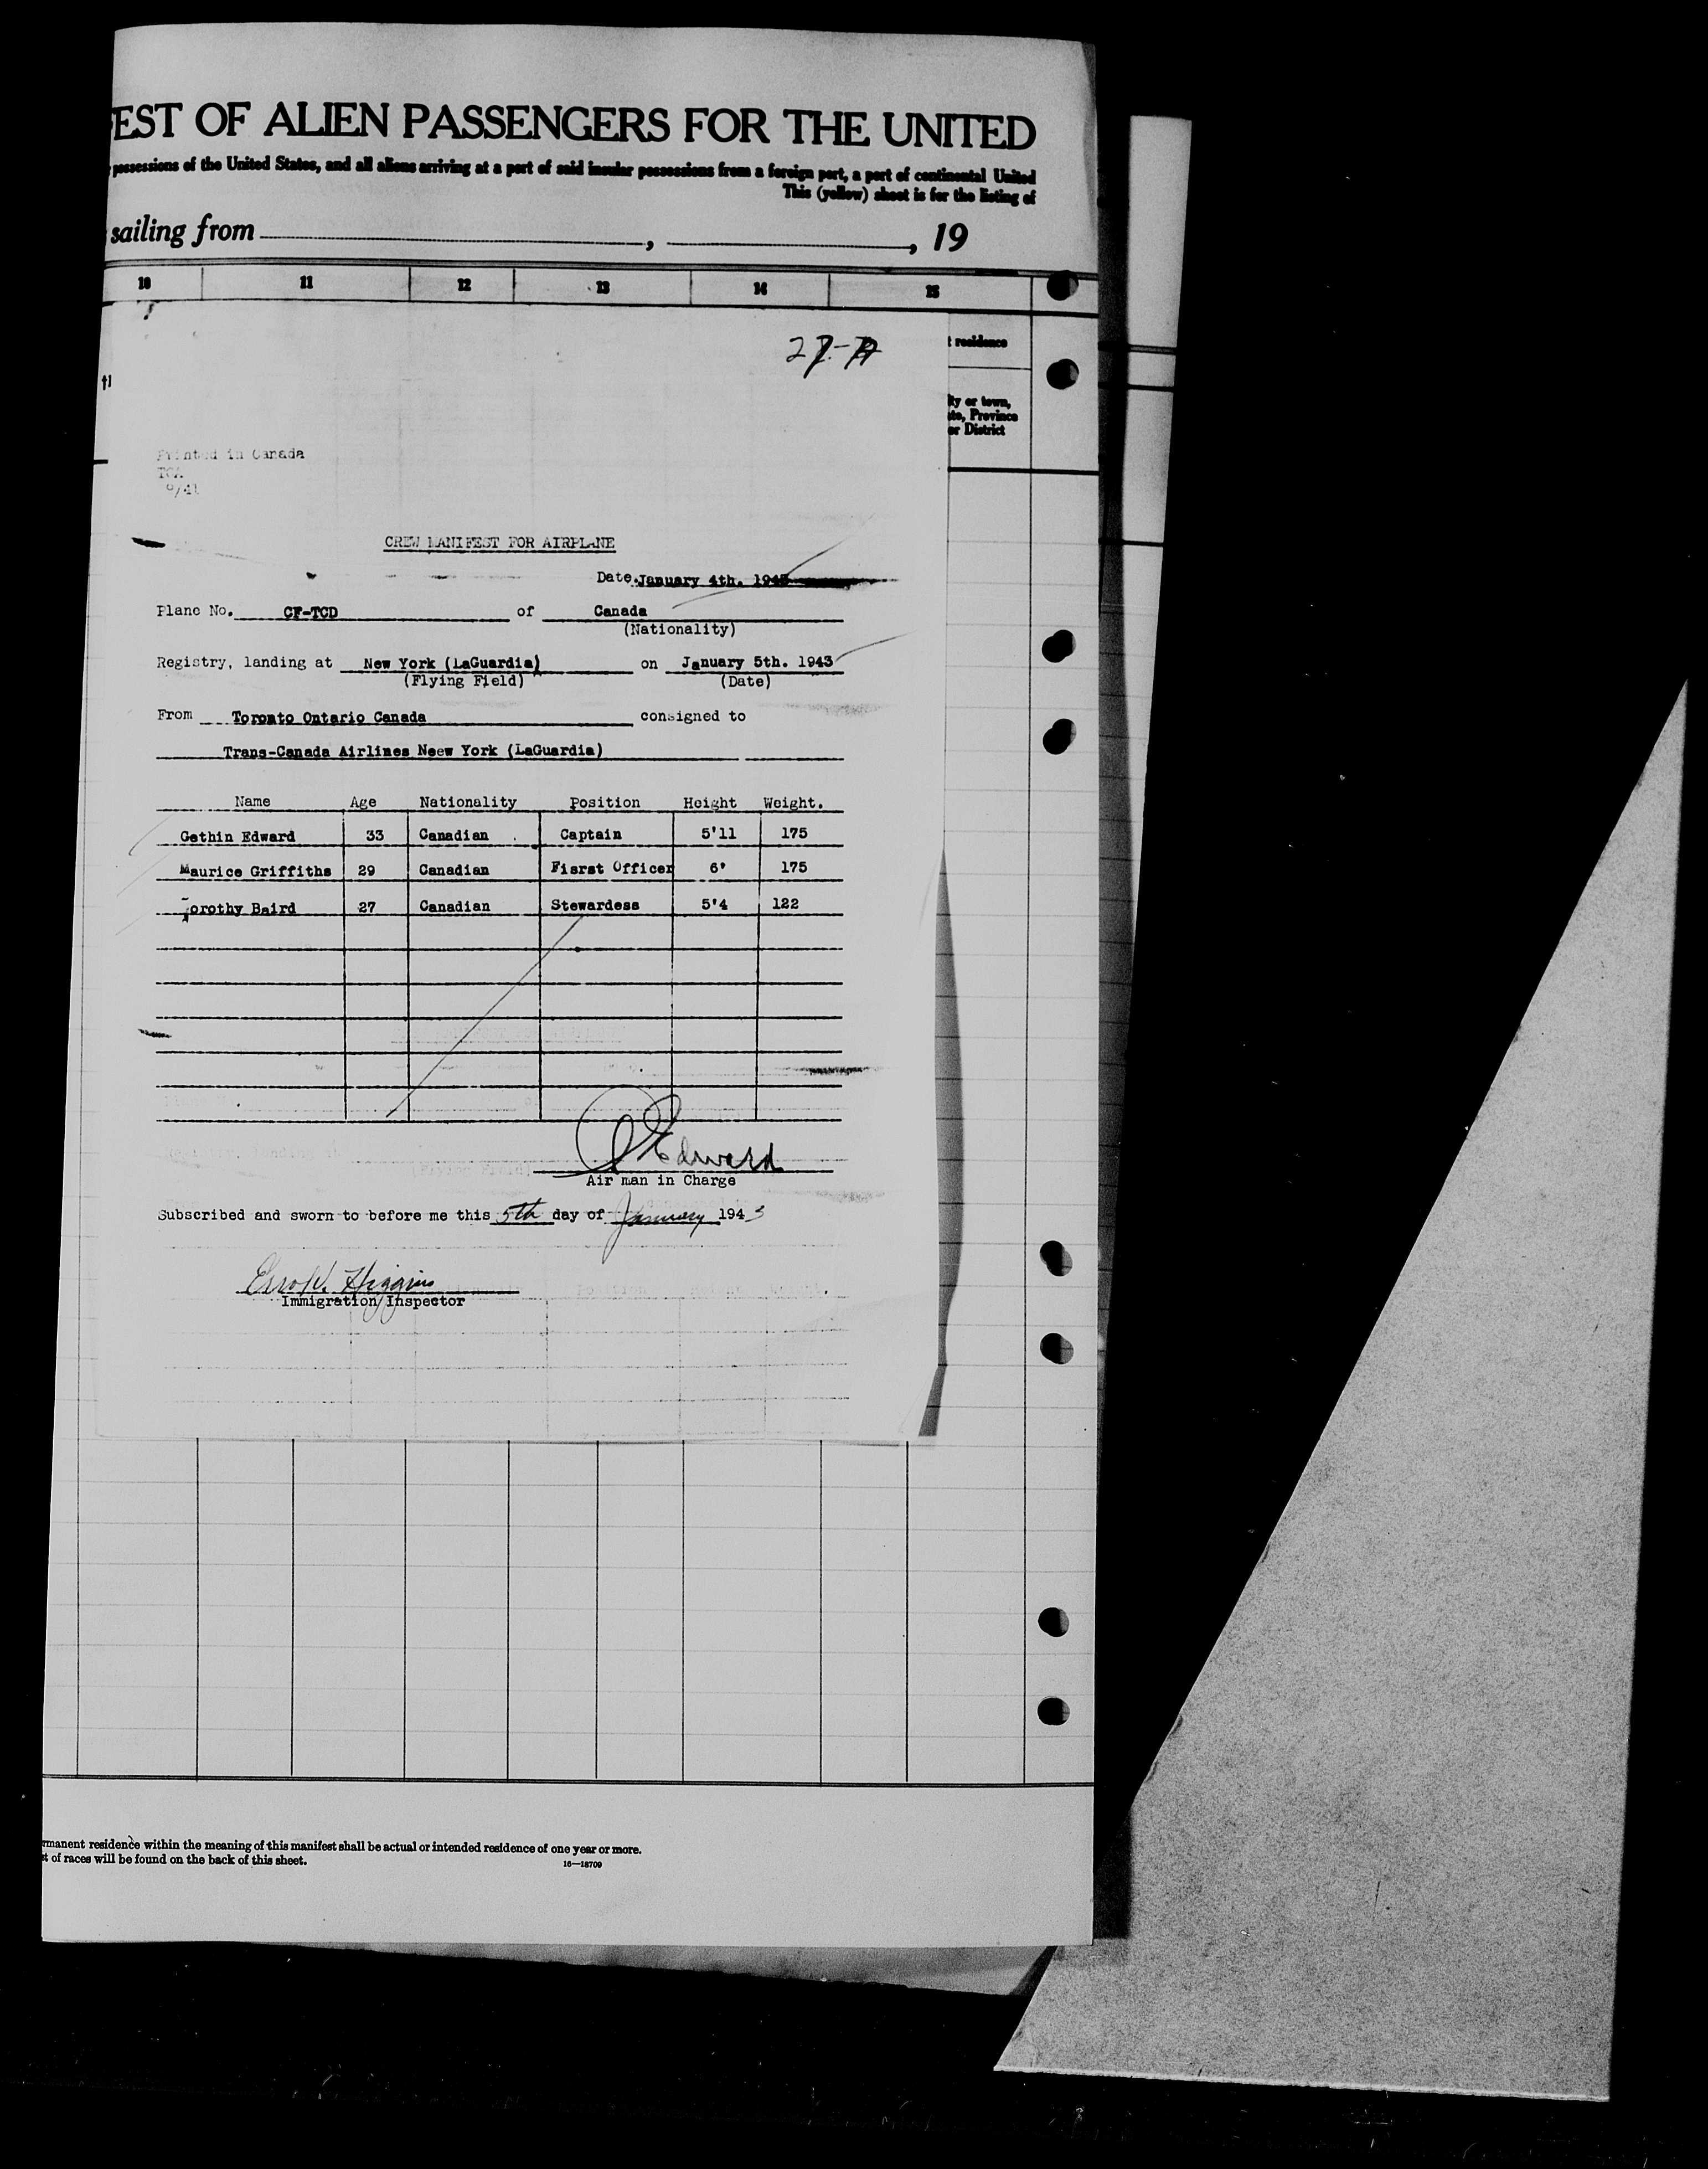 EST OF ALIEN PASSENGERS FOR THE UNITED
possessions of the United States, and all aliens arriving at a port of said insular possessions from a foreign port, a port of continental United
This (yellow) sheet is for the listing of
sailing from , , 19
10 11 12 13 14 15
residence
ty or town,
ate, Province
or District
Printed in Canada
TCA
CREW MANIFEST FOR AIRPLANE
Date January 4th. 1943
Plane No. CF-TCD of Canada
(Nationality)
Registry, landing at New York (LaGuardia) on January 5th. 1943
(Flying Field) (Date)
From Toronto Ontario Canada consigned to
Trans-Canada Airlines Neew York (LaGuardia)
Name Age Nationality Position Height Weight.
Gethin Edward 33 Canadian Captain 5'11 175
Maurice Griffiths 29 Canadian Fisrst Officer 6' 175
Dorothy Baird 27 Canadian Stewardess 5'4 122
Edward
Air man in Charge
Subscribed and sworn to before me this 5th day of January 1943
Higgins
Immigration Inspector
rmanent residence within the meaning of this manifest shall be actual or intended residence of one year or more.
t of races will be found on the back of this sheet.
16—18709